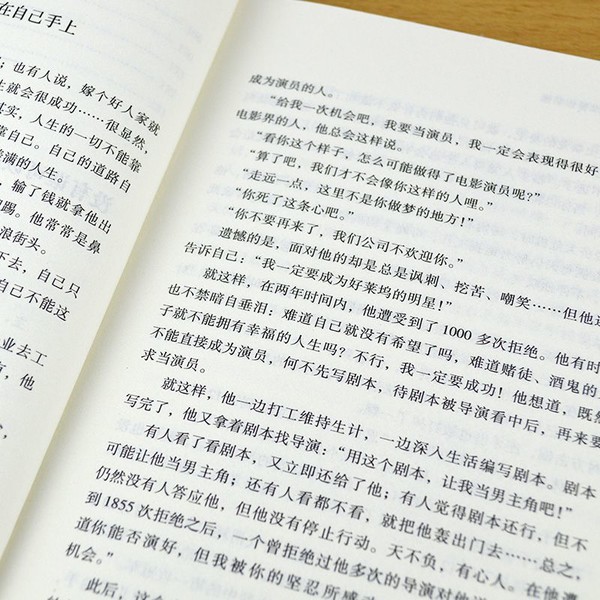 在自己手上
；也有人说，嫁个好人家就
生就会很成功……很显然，
其实，人生的一切不能靠
靠自己。自己的道路自
满的人生。
，输了钱就拿他出
踢。他常常是鼻
浪街头。
下去，自己只
自己不能这
业去工
，他
成为演员的人。
“给我一次机会吧，我要当演员，我一定会表现得很好
电影界的人，他总会这样说。
“看你这个样子，怎么可能做得了电影演员呢?”
“算了吧，我们才不会像你这样的人哩。”
“走远一点，这里不是你做梦的地方!”
“你死了这条心吧。”
“你不要再来了，我们公司不欢迎你。”
遗憾的是，面对他的却是总是讽刺、挖苦、嘲笑……但他
告诉自己：“我一定要成为好莱坞的明星!”
就这样，在两年时间内，他遭受到了 1000 多次拒绝。他有时
也不禁暗自垂泪：难道自己就没有希望了吗，难道赌徒、酒鬼的
子就不能拥有幸福的人生吗？不行，我一定要成功！他想道，既然
不能直接成为演员，何不先写剧本，待剧本被导演看中后，再来要
求当演员。
就这样，他一边打工维持生计，一边深入生活编写剧本。剧本
写完了，他又拿着剧本找导演：“用这个剧本，让我当男主角吧!”
有人看了看剧本，又立即还给了他；有人觉得剧本还行，但不
可能让他当男主角；还有人看都不看，就把他轰出门去……总之，
仍然没有人答应他，但他没有停止行动。天不负，有心人。在他遭
到 1855 次拒绝之后，一个曾拒绝过他多次的导演对他说
道你能否演好，但我被你的坚忍所感
机会。”
此后，这